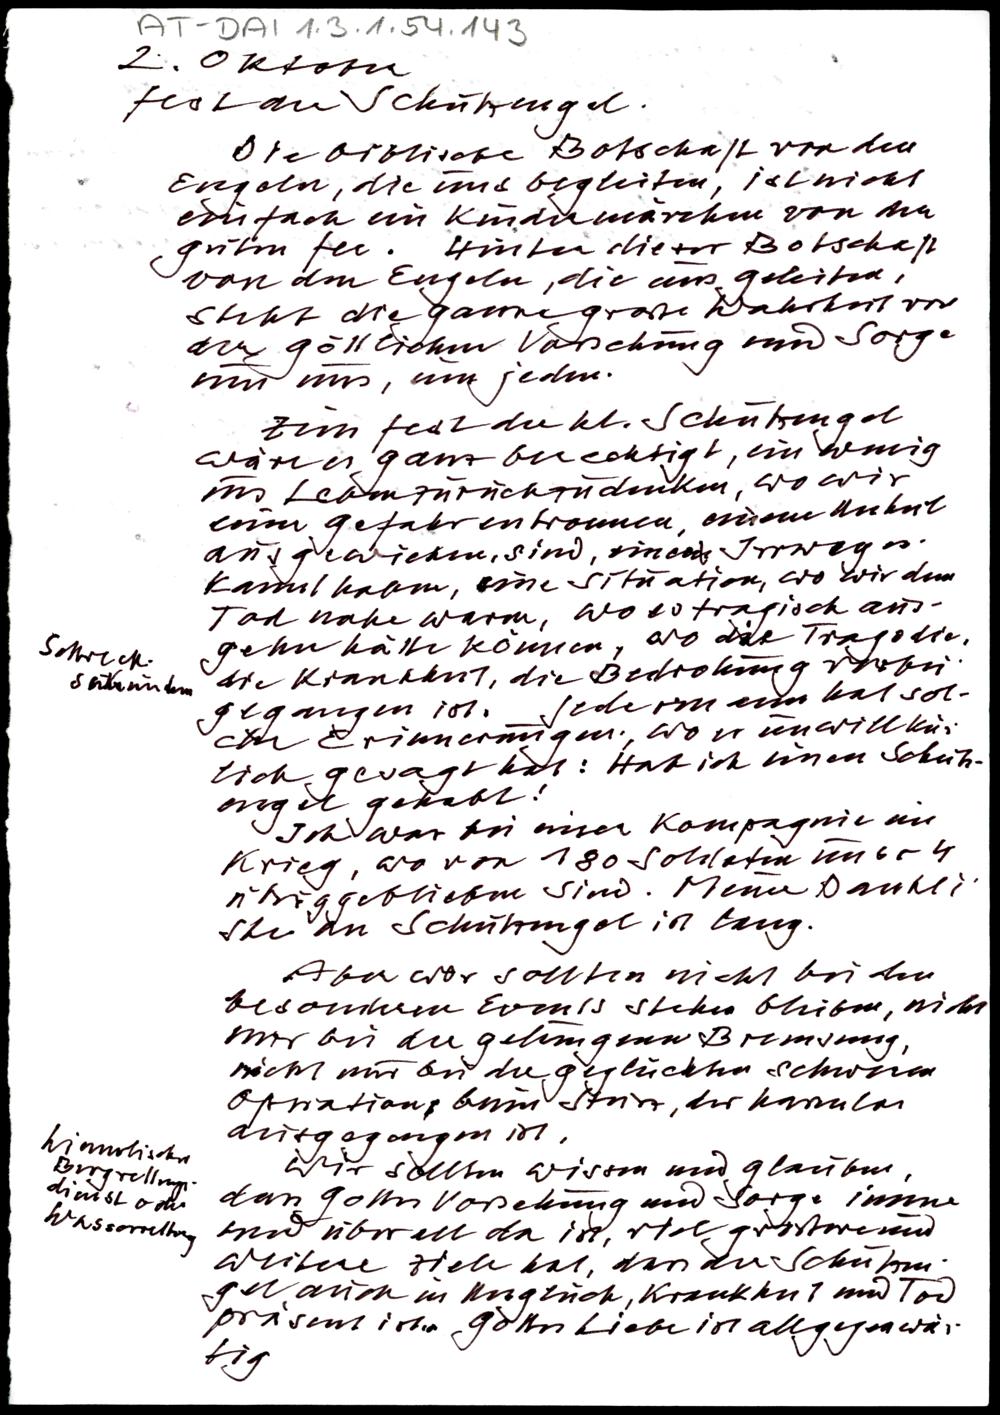 AT-DAI 1.3.1.54.143
2. Oktober
Fest der Schutzengel.
Die biblische Botschaft von den
Engeln, die uns begleiten, ist nicht
einfach ein Kindermärchen von der
guten Fee. Hinter dieser Botschaft
von den Engeln, die uns geleiten,
steht die ganze grosse Wahrheit von
der göttlichen Vorsehung und Sorge
um uns, um jeden.
Zum Fest der hl. Schutzengel
wäre es ganz berechtigt, ein wenig
ins Leben zurückzudenken, wo wir
einer Gefahr entronnen, einem Unheil
ausgewichen, sind, einen Irrweg er-
kannt haben, eine Situation, wo wir dem
Tod nahe waren, wo es tragisch aus-
gehen hätte können, wo die Tragödie,
die Krankheit, die Bedrohung vorbei-
gegangen ist. Jedermann hat sol-
che Erinnerungen, wo er unwillkür-
lich gesagt hat: Hab ich einen Schutz-
engel gehabt!
Schreck-
sekunden
Ich war bei einer Kompagnie im
Krieg, wo von 180 Soldaten nur 4
übriggeblieben sind. Meine Dankli-
ste an Schutzengel ist lang.
Aber wir sollten nicht bei den
besonderen Events stehen bleiben, nicht
nur bei der gelungenen Bremsung,
nicht nur bei der geglückten schweren
Operation, beim Sturz, der harmlos
ausgegangen ist.
Wir sollten wissen und glauben,
dass Gottes Vorsehung und Sorge immer
und überall da ist, viel grössere und
weitere Ziele hat, dass der Schutzen-
gel auch in Unglück, Krankheit und Tod
präsent ist. Gottes Liebe ist allgegenwär-
tig
himmlischer
Bergrettungs-
dienst oder
Wasserrettung